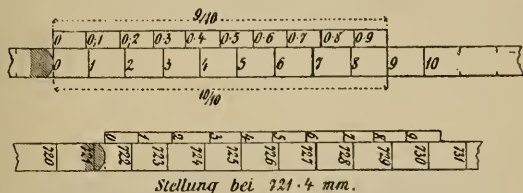 9/10
0 0,1 0,2 0.3 0.4 0.5 0.6 0.7 0.8 0.9
0 1 2 3 4 5 6 7 8 9 10
10/10
0 1 2 3 4 5 6 7 8 9
720 721 722 723 724 725 726 727 728 729 730 731
Stellung bei 721·4 mm.